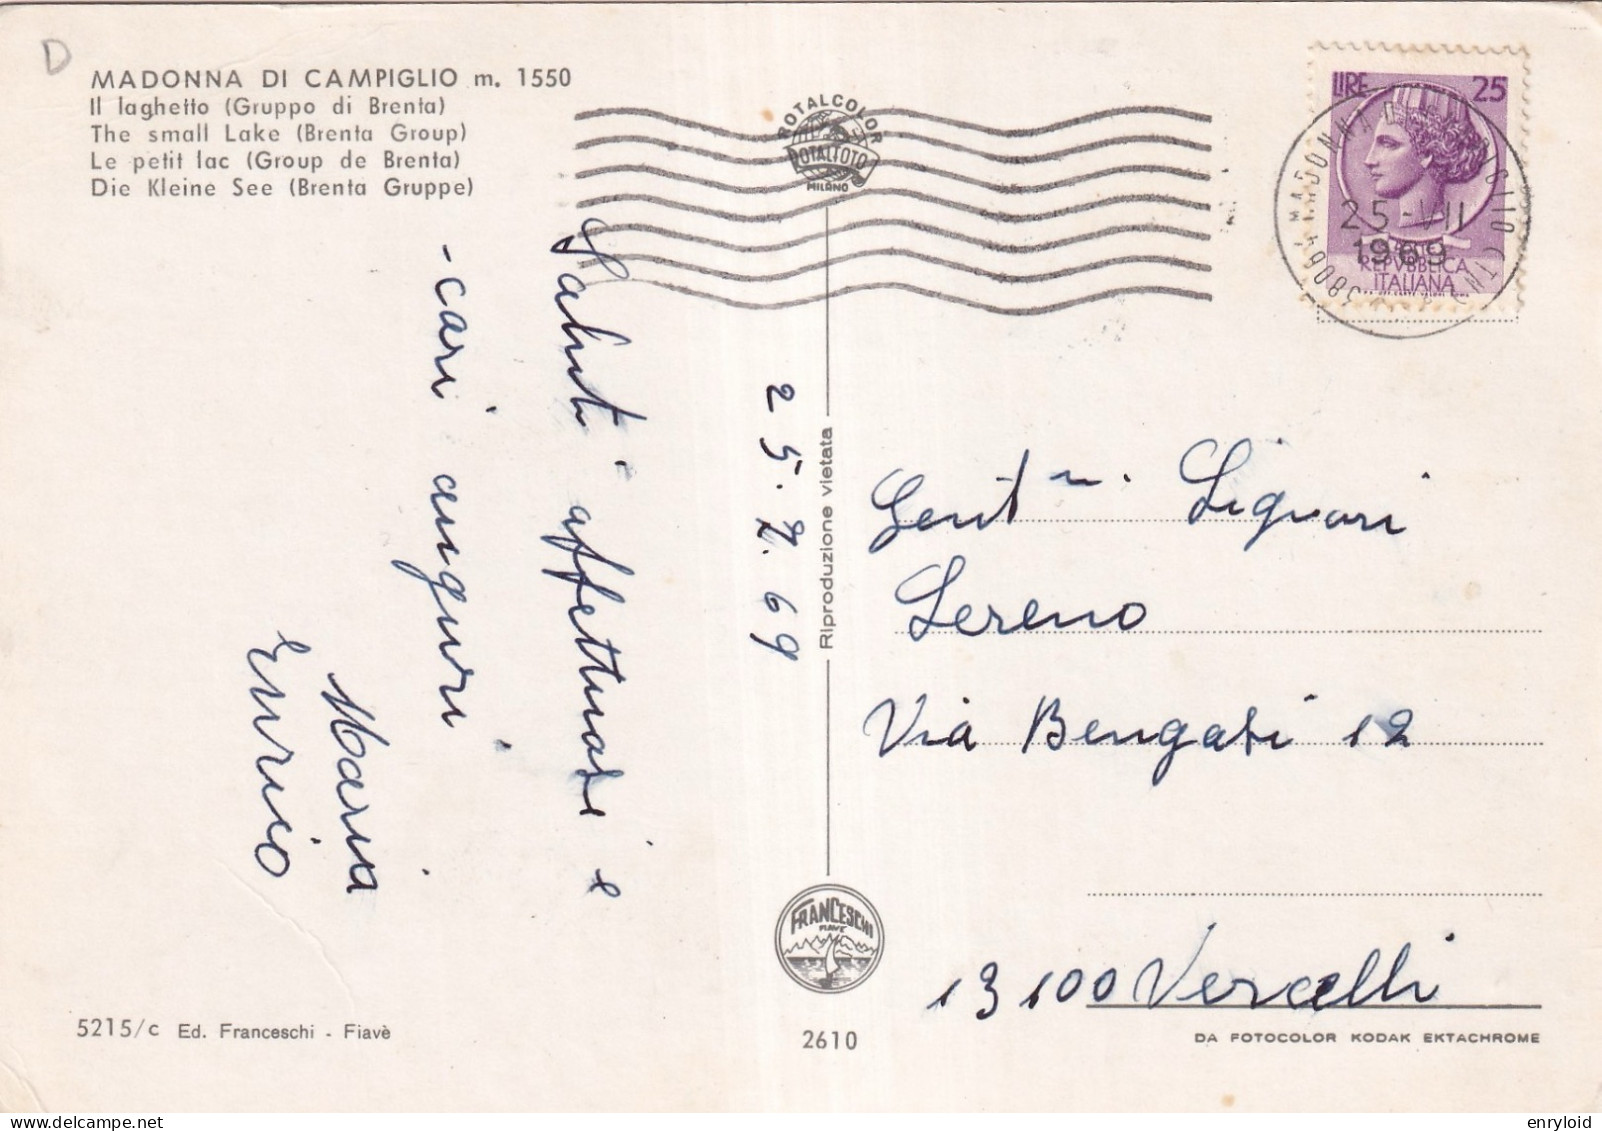 D
MADONNA DI CAMPIGLIO m. 1550
Il laghetto (Gruppo di Brenta)
The small Lake (Brenta Group)
Le petit lac (Group de Brenta)
Die Kleine See (Brenta Gruppe)
ROTALCOLOR
ROTALFOTO
MILANO
LIRE 25
REPVBBLICA
ITALIANA
38064 MADONNA DI CAMPIGLIO (TN)
25-VII
1969
25.7.69
Saluti affettuosi e
-cari auguri
Maria
Enrico
Riproduzione vietata
Gent mi. Signori
Sereno
Via Bengasi 12
13100 Vercelli
FRANCESCHI
FIAVÈ
5215/C Ed. Franceschi - Fiavè
2610
DA FOTOCOLOR KODAK EKTACHROME
delcampe.net
enryloid